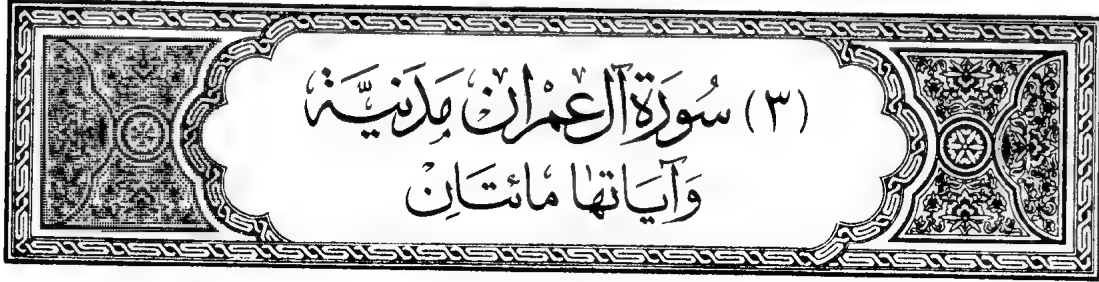 (٣) سُورَةُ آلِ عِمْرَانَ مَدَنِيَّةٌ
وَآيَاتُهَا مِائَتَانِ